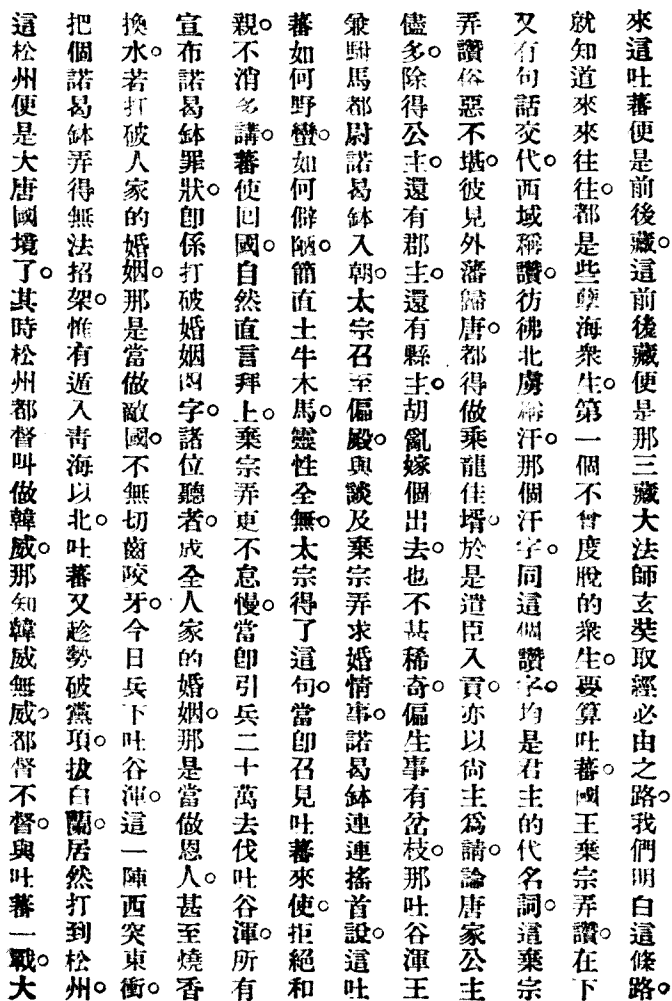 來這吐蕃便是前後藏。這前後藏便是那三藏大法師玄奘取經必由之路。我們明白這條路。
就知道來來往往。都是些孽海衆生。第一個不曾度脫的衆生。要算吐蕃國王棄宗弄讚。在下
又有句話交代。西域稱讚。彷彿北虜稱汗。那個汗字。同這個讚字。均是君主的代名詞。這棄宗
弄讚俗惡不堪。彼見外藩歸唐。都得做乘龍佳壻。於是遣臣入貢。亦以尙主爲請。論唐家公主
儘多。除得公主。還有郡主。還有縣主。胡亂嫁個出去。也不甚稀奇。偏生事有岔枝。那吐谷渾王
兼駙馬都尉諾曷鉢入朝。太宗召至偏殿。與談及棄宗弄求婚情事。諾曷鉢連連搖首。說這吐
蕃如何野蠻。如何僻陋。簡直土牛木馬。靈性全無。太宗得了這句。當卽召見吐蕃來使。拒絕和
親。不消多講。蕃使回國。自然直言拜上。棄宗弄更不怠慢。當卽引兵二十萬去伐吐谷渾。所有
宣布諾曷鉢罪狀。卽係打破婚姻四字。諸位聽者。成全人家的婚姻。那是當做恩人。甚至燒香
換水。若打破人家的婚姻。那是當做敵國。不無切齒咬牙。今日兵下吐谷渾。這一陣西突東衝。
把個諾曷鉢弄得無法招架。惟有遁入青海以北。吐蕃又趁勢破黨項。拔白蘭。居然打到松州。
這松州便是大唐國境了。其時松州都督叫做韓威。那知韓威無威。都督不督。與吐蕃一戰。大